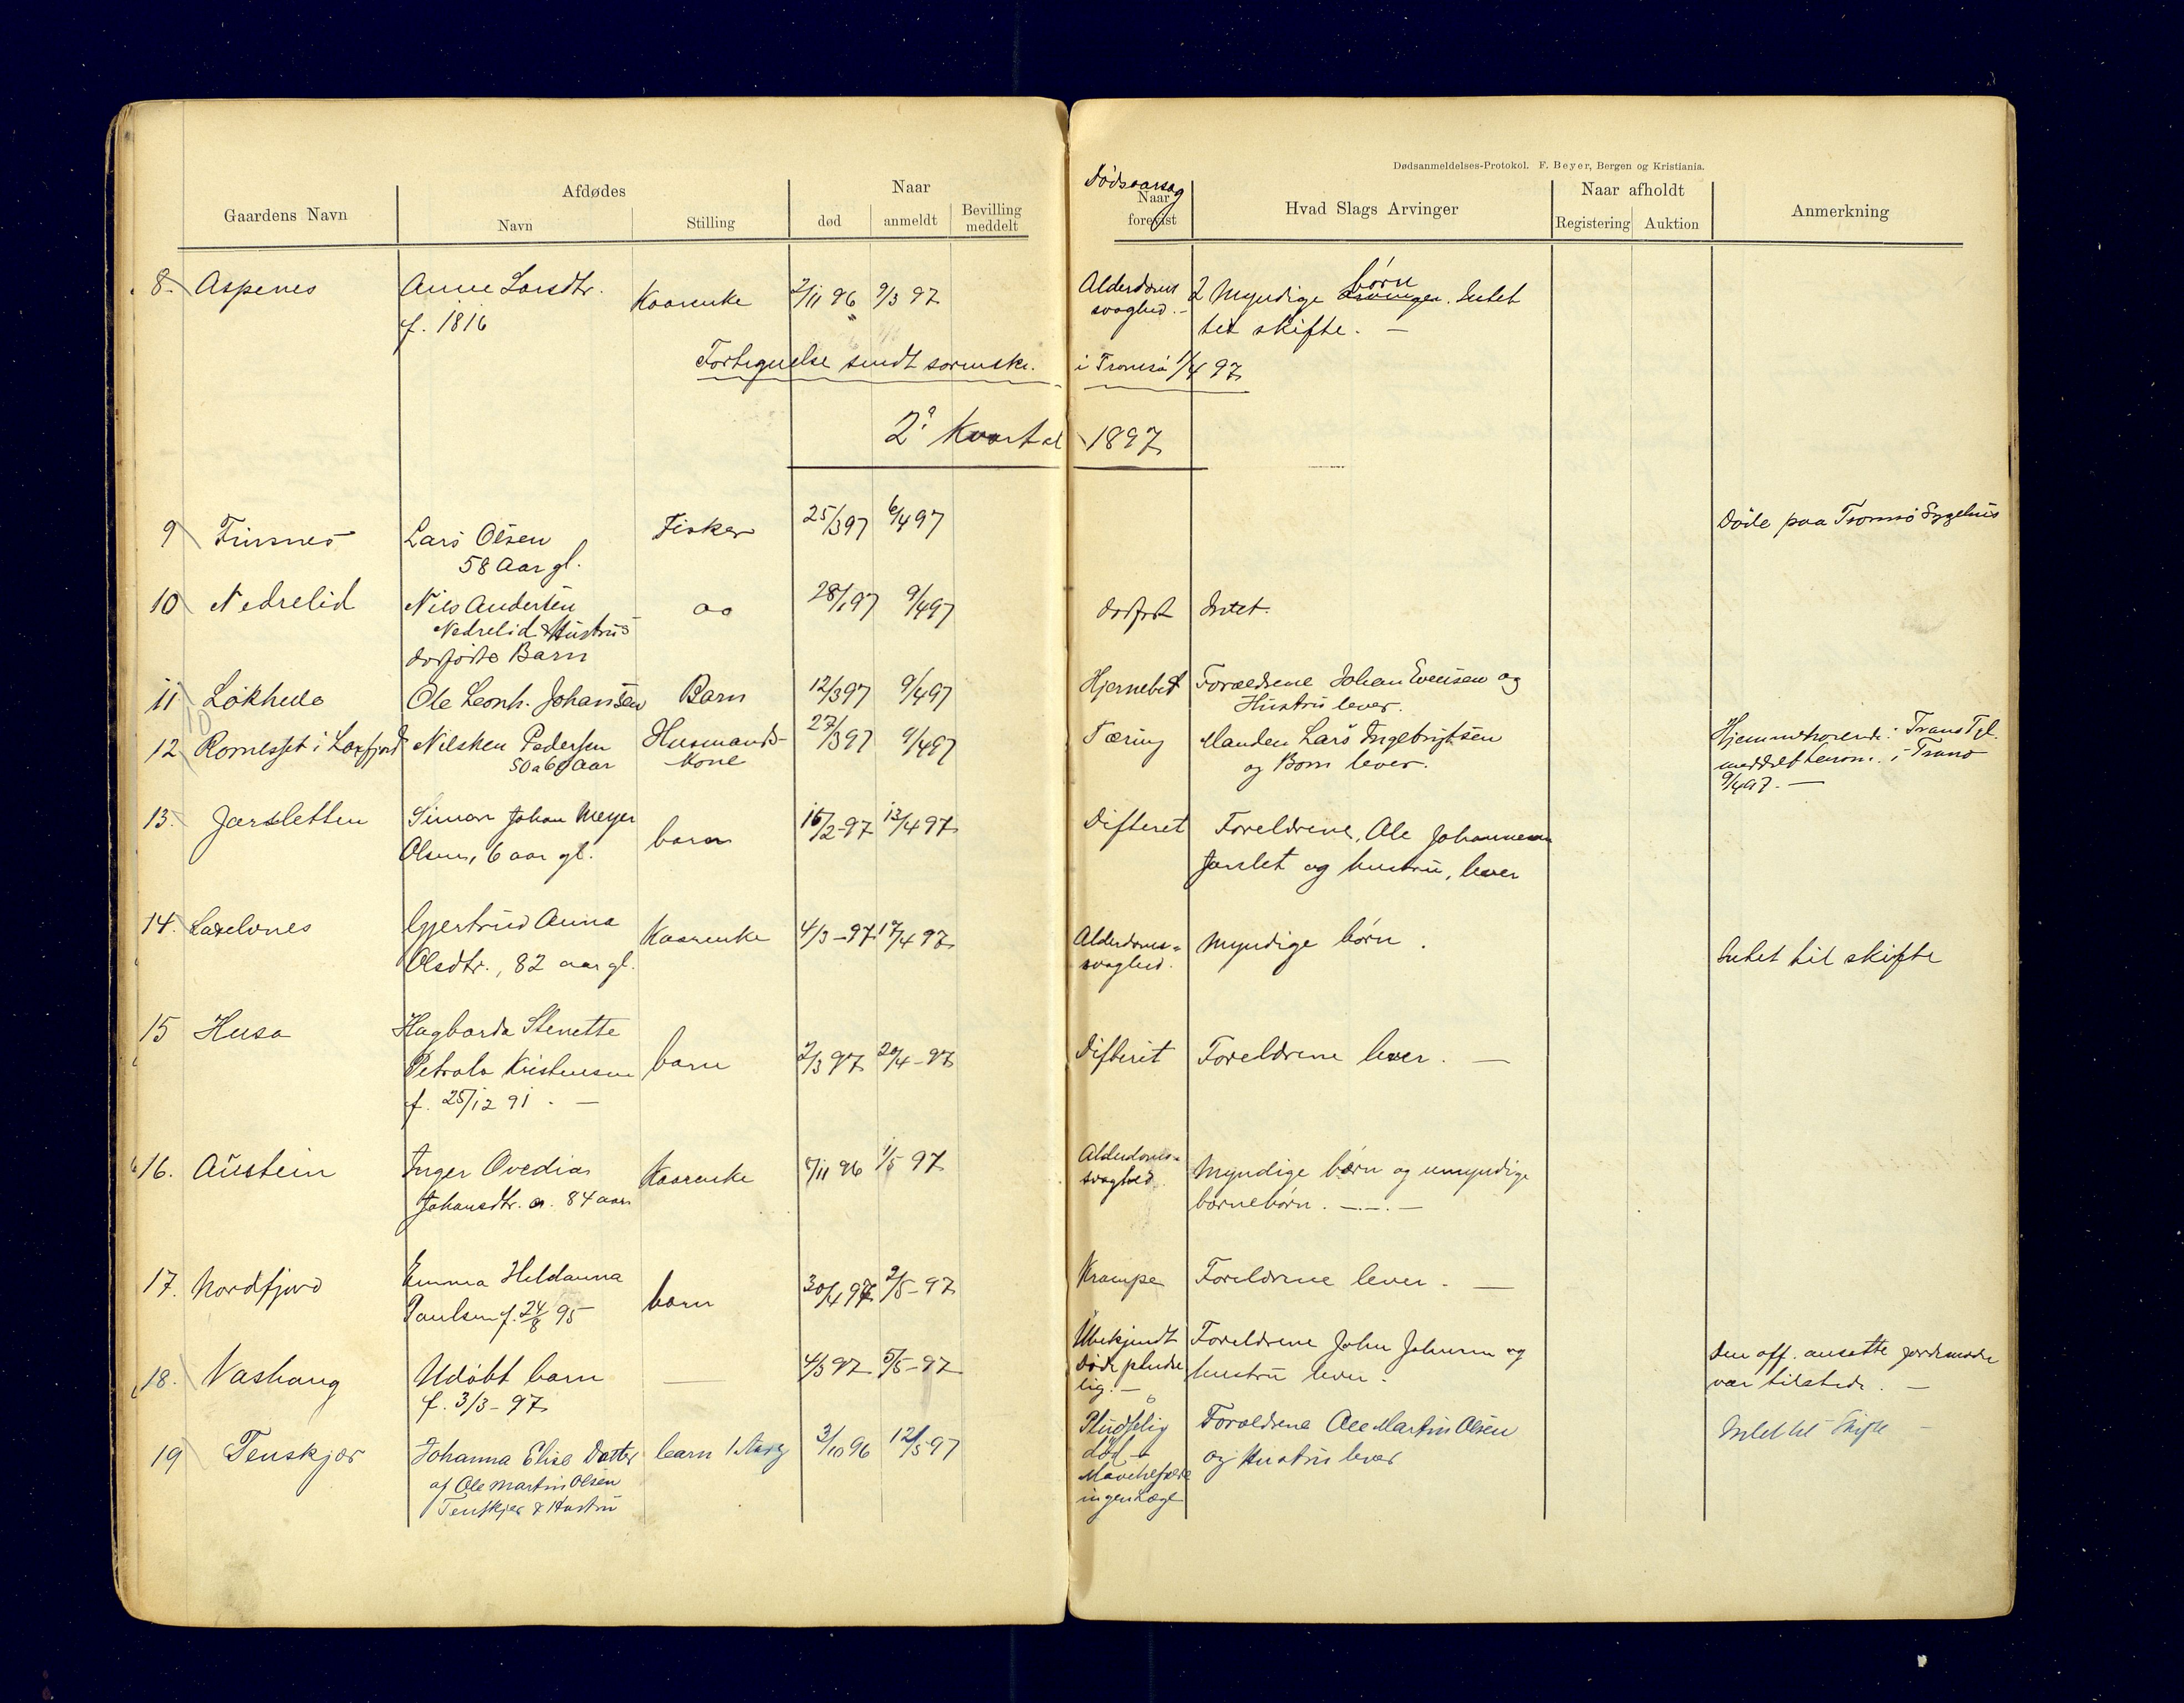 Dødsanmeldelses-Protokol. F. Beyer, Bergen og Kristiania.
Gaardens Navn
Afdødes
Navn
Stilling
Naar
død
anmeldt
Bevilling
meddelt
Dødsaarsag
Naar
forevist
Hvad Slags Arvinger
Naar afholdt
Registering
Auktion
Anmerkning
8. Aspenes Anne Larsdtr. Kaarenke 2/11 96 9/3 97 Alderdoms 2 Myndige børn. Intet
f. 1816 svaghed. - til skifte. -
Fortegnelse sendt sorenskr. i Tromsø 1/4 97
2. Kvartal 1897
9 Finsnes Lars Olsen Fisker 25/3 97 6/4 97 Døde paa Tromsø Sygehus
58 Aar gl.
10 Nedrelid Nils Andersen do 28/1 97 9/4 97 dødfødt Intet.
Nedrelid & Hustrus
dødføde Barn
11 Løkhede Ole Leonh. Johansen Barn 12/3 97 9/4 97 Hjernebet Forældrene Johan Evensen og
Hustru lever.
12 Rornesset i Laxfjord Nilsken Pedersen Husmands- 27/3 97 9/4 97 Tæring Manden Lars Ingebrigtsen
50 a 60 Aar Kone og Børn lever.
Hjemmehørende i Tranø Tgl.
meddelt i Tranø
9/4 97. -
13. Jærsletten Simon Johan Meyer barn 16/2-97 13/4 97 Difteret Foreldrene, Ole Johannesen
Olsen, 6 aar gl. Jærslet og hustru, lever
14. Laxelvnes Gjertrud Anna Kaarenke 4/3-97 17/4 97 Alderdoms- Myndige børn.
Olsdtr., 82 aar gl. svaghed. Intet til skifte
15 Husa Hagbarda Stenette
Petrala Kristensen barn 2/3 97 20/4-97 Difterit Foreldrene lever. -
f. 25/12 91. -
16. Austein Inger Ovedia Kaarenke 5/11 96 1/5 97 Alderdoms- Myndige børn og umyndige
Johansdtr. a. 84 aar svaghed. børnebørn. -.-. -
17. Nordfjord Emma Hildanna barn 30/4 97 2/5-97 Krampe Foreldrene lever. -
Paulsen f. 24/8 95
18. Vashaug Udøbt barn - 4/3 97 5/5-97 Ubekjendt Foreldrene John Johnsen og
f. 3/3-97 Døde pludse hustru lever.
lig. -
Den off. ansatte jordmoder
var tilstede. -
19 Tenskjær Johanna Elise Datter barn 1 Aar g 3/10 96 12/5 97 Pludselig Forældrene Ole Martin Olsen
af Ole Martin Olsen død - og Hustru lever
Tenskjær & Hustru
ingen Læge
Intet til Skifte -